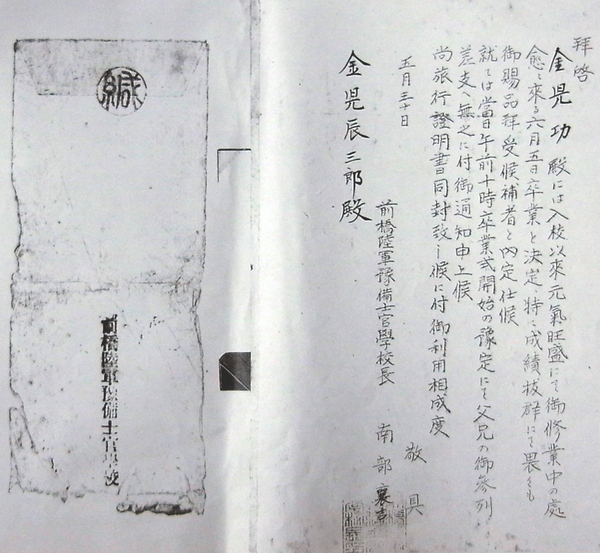 拝啓
金児功殿には入校以來元氣旺盛にて御修業中の處
愈〻來る六月五日卒業と決定、特に成績抜群にて畏くも
御賜品拜受候補者と内定仕候
就ては當日午前十時卒業式開始の豫定にて父兄の御參列
差支へ無之に付御通知申上候
尚旅行證明書同封致し候に付御利用相成度
敬具
五月三十日
前橋陸軍豫備士官學校長 南部襄吉
金児辰三郎殿
緘
前橋陸軍豫備士官學校